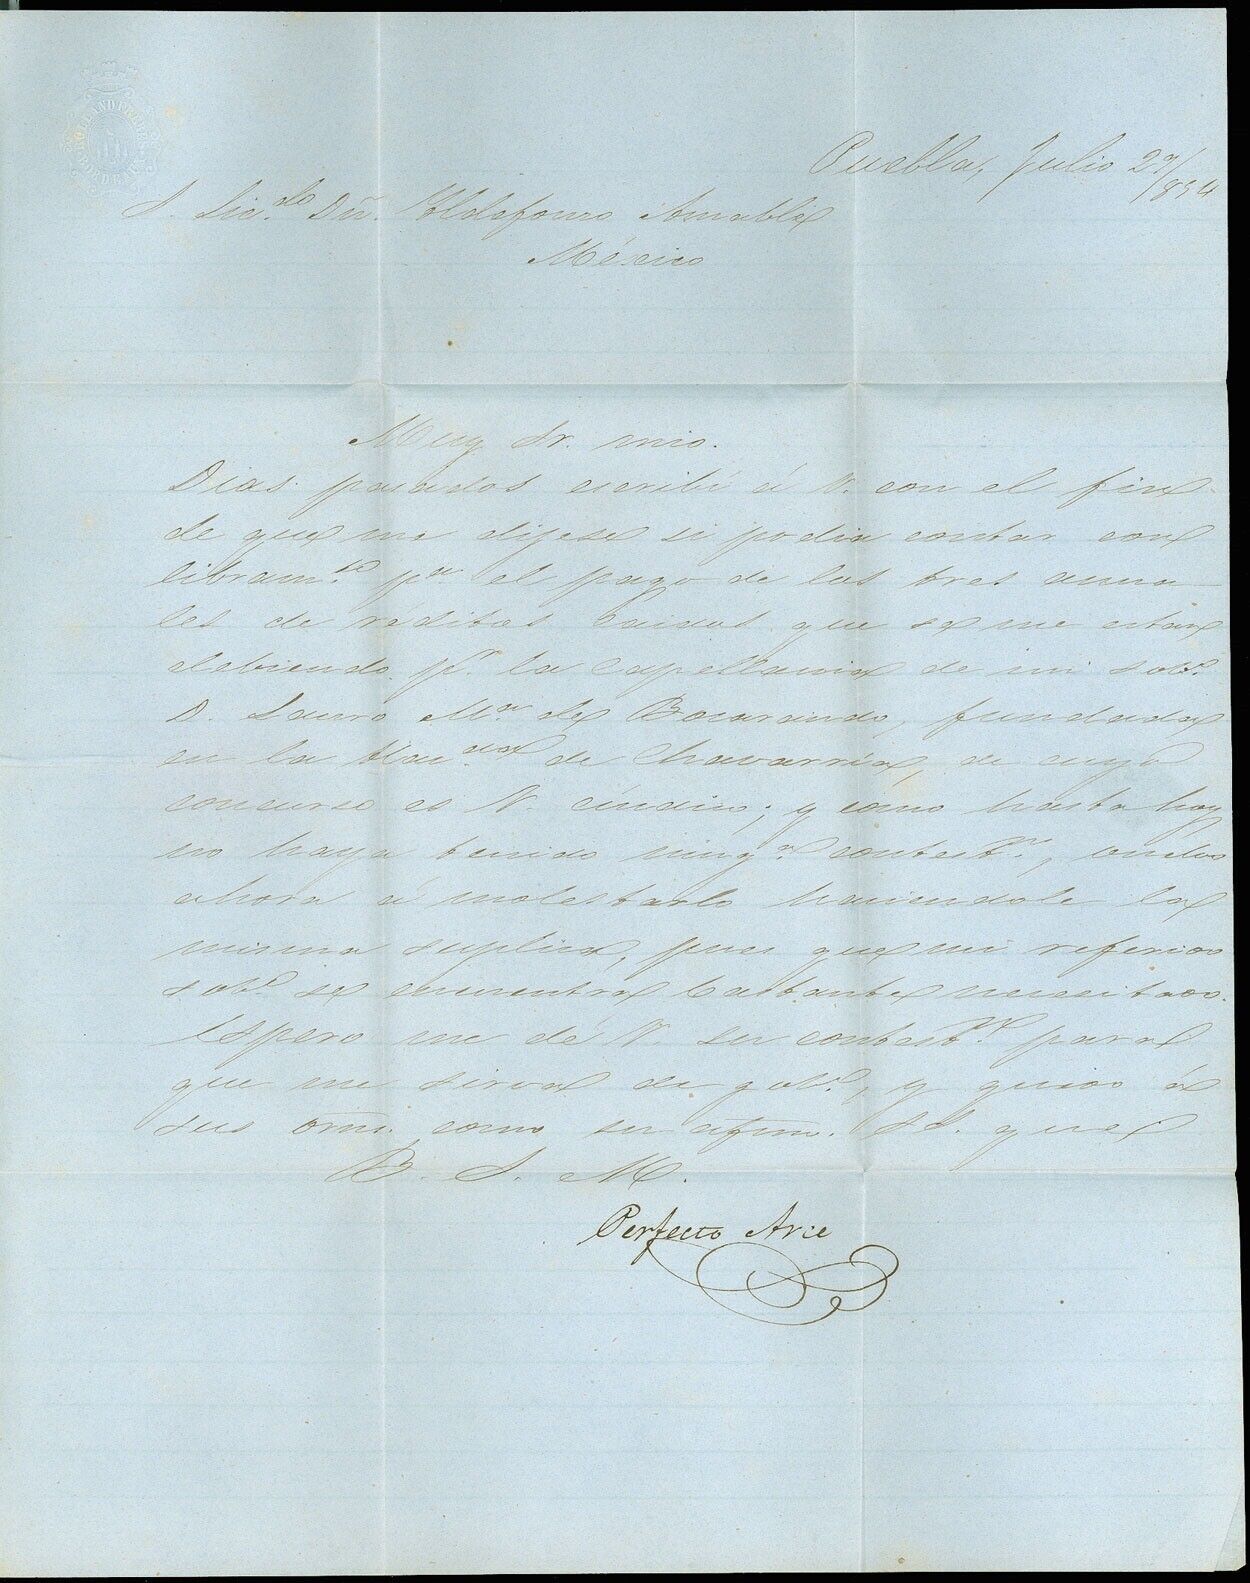 Puebla, Julio 27/854
S. Lic.do Dn. Yldefonso Amable
México
Muy Sr. mio.
Dias pasados escribí á V. con el fin
de que me dijese si podia contar con
libram.to pa. el pago de las tres anua-
les de réditos caidos que se me estan
debiendo pr. la Capellania de mi sob.o
D. Lauro Ma. de Bocarando, fundada
en la Hac.da de Chavarria, de cuyo
concurso es V. cíndico; y como hasta hoy
no haya tenido ning.a contest.n, vuelvo
ahora á molestarlo haciendole la
misma suplica, pues que mi referido
sob.o se encuentra bastante necesitado.
Espero me dé V. su contest.n para
que me sirva de gob.o, y quedo á
sus orns. como su afmo. SS. que
B. S. M.
Perfecto Arce